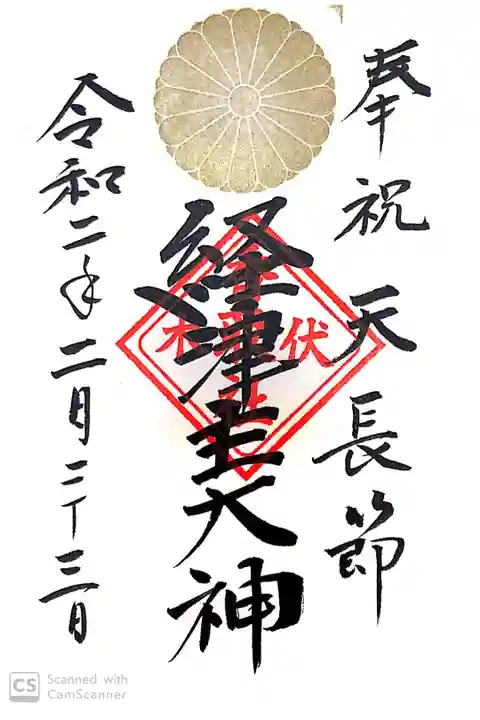 奉祝天長節
経津主大神
伏木
令和二年二月二十三日
CS Scanned with
CamScanner